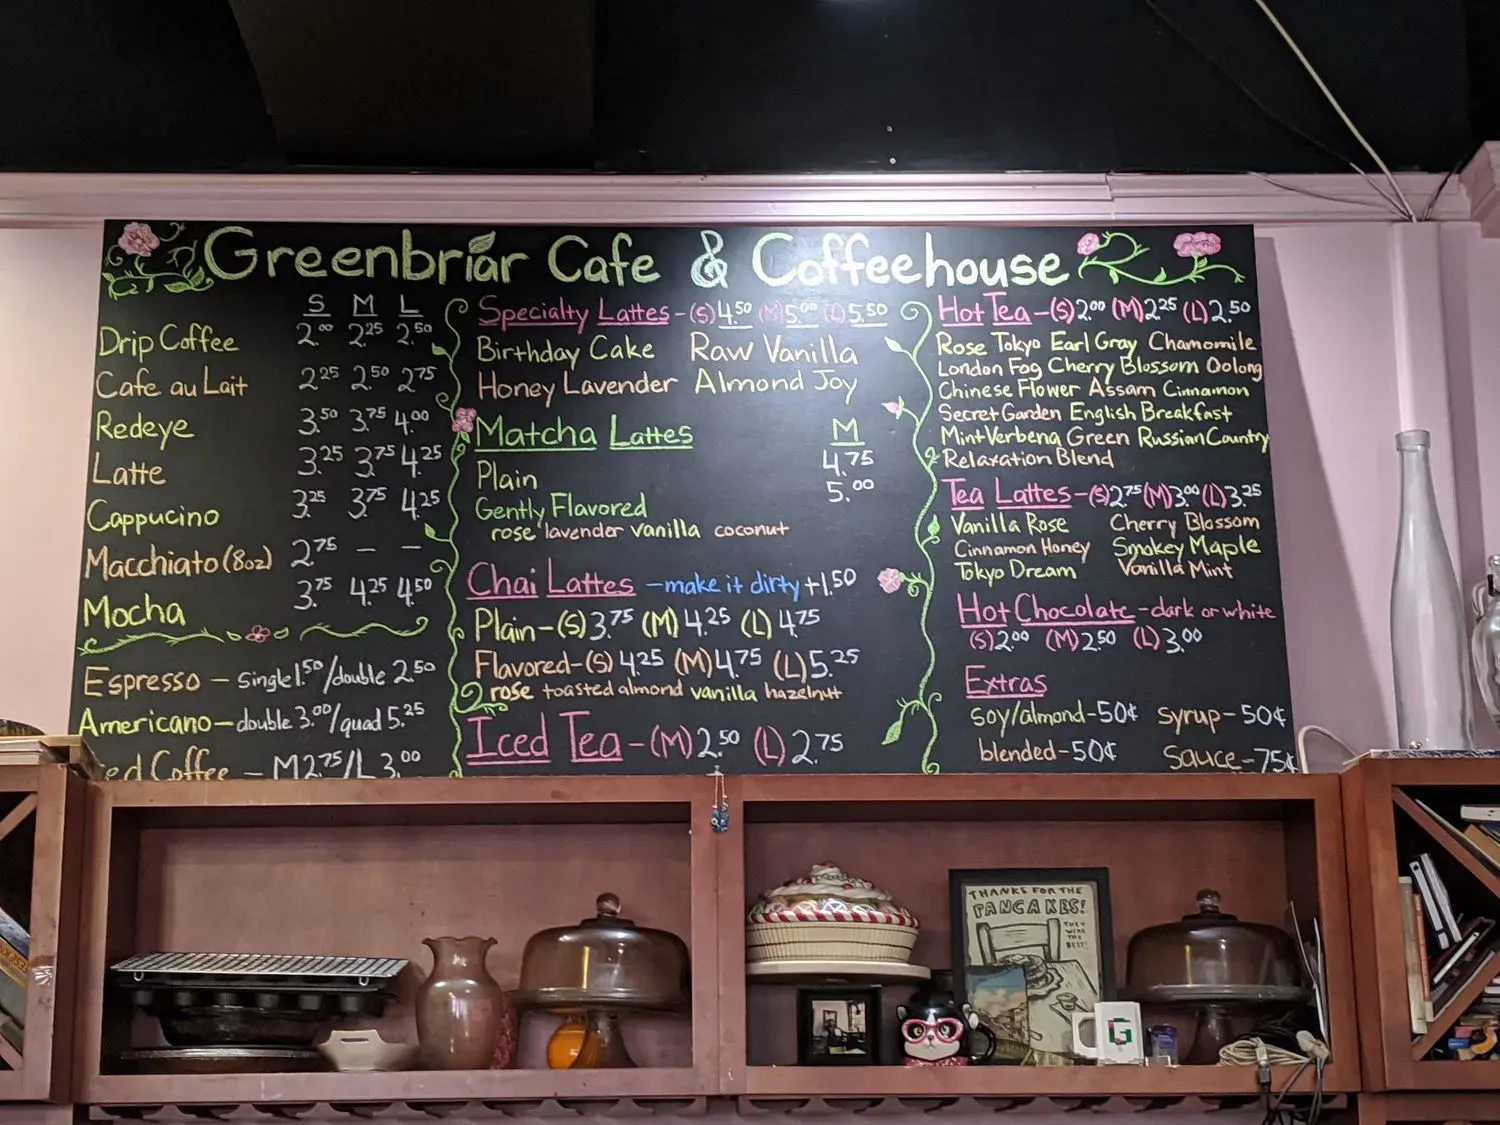 Greenbriar Cafe & Coffeehouse
S M L
Drip Coffee 2.00 2.25 2.50
Cafe au Lait 2.25 2.50 2.75
Redeye 3.50 3.75 4.00
Latte 3.25 3.75 4.25
Cappucino 3.25 3.75 4.25
Macchiato (8oz) 2.75 – –
Mocha 3.75 4.25 4.50
Espresso – single 1.50/double 2.50
Americano – double 3.00/quad 5.25
ed Coffee – M 2.75/L 3.00
Specialty Lattes – (S) 4.50 (M) 5.00 (L) 5.50
Birthday Cake Raw Vanilla
Honey Lavender Almond Joy
Matcha Lattes M
Plain 4.75
Gently Flavored 5.00
rose lavender vanilla coconut
Chai Lattes – make it dirty +1.50
Plain – (S) 3.75 (M) 4.25 (L) 4.75
Flavored – (S) 4.25 (M) 4.75 (L) 5.25
rose toasted almond vanilla hazelnut
Iced Tea – (M) 2.50 (L) 2.75
Hot Tea – (S) 2.00 (M) 2.25 (L) 2.50
Rose Tokyo Earl Gray Chamomile
London Fog Cherry Blossom Oolong
Chinese Flower Assam Cinnamon
Secret Garden English Breakfast
Mint Verbena Green Russian Country
Relaxation Blend
Tea Lattes – (S) 2.75 (M) 3.00 (L) 3.25
Vanilla Rose Cherry Blossom
Cinnamon Honey Smokey Maple
Tokyo Dream Vanilla Mint
Hot Chocolate – dark or white
(S) 2.00 (M) 2.50 (L) 3.00
Extras
soy/almond – 50¢ syrup – 50¢
blended – 50¢ sauce – 75¢
THANKS FOR THE
PANCAKES!
THEY
WERE
THE
BEST!
G